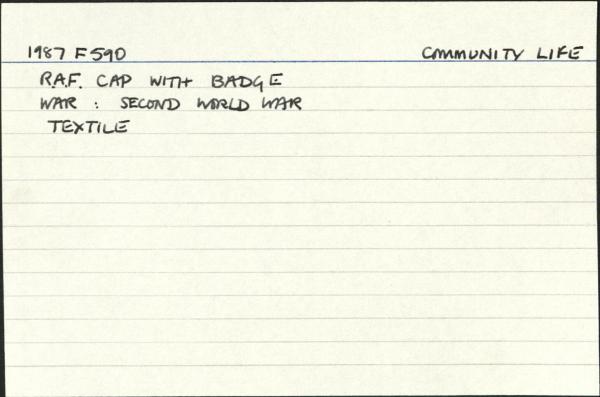 1987 F590 COMMUNITY LIFE
R.A.F. CAP WITH BADGE
WAR : SECOND WORLD WAR
TEXTILE